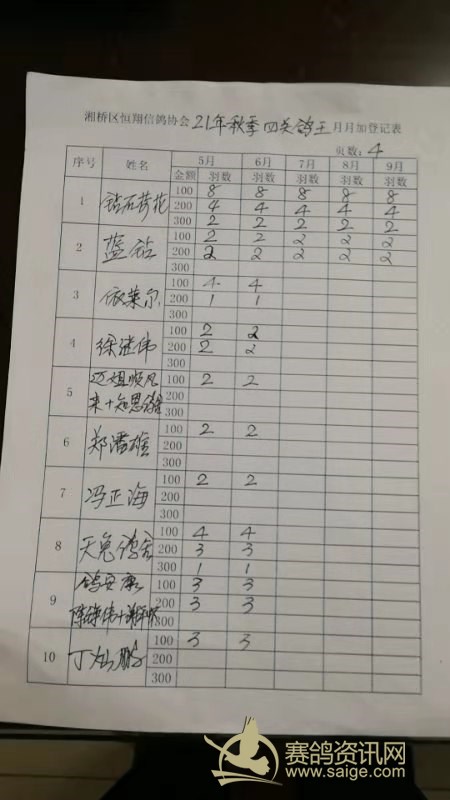 湘桥区恒翔信鸽协会 21年秋季四关鸽王 月月加登记表
页数：4
序号 姓名 5月 6月 7月 8月 9月
金额 羽数 羽数 羽数 羽数 羽数
1 钻石荷花 100 8 8 8 8 8
200 4 4 4 4 4
300 2 2 2 2 2
2 蓝钻 100 2 2 2 2 2
200 2 2 2 2 2
300
3 依莱尔 100 4 4
200 1 1
300
4 徐进伟 100 2 2
200 2 2
300
5 迈姐顺风 100 2 2
来+知恩鸽舍 200
300
6 郑潘雄 100 2 2
200
300
7 冯正海 100 2 2
200
300
8 天兔鸽舍 100 4 4
200 3 3
300 1 1
9 鸽安康 100 3 3
200 3 3
300
10 丁灿鹏 100 3 3
200
300
赛鸽资讯网
www.saige.com